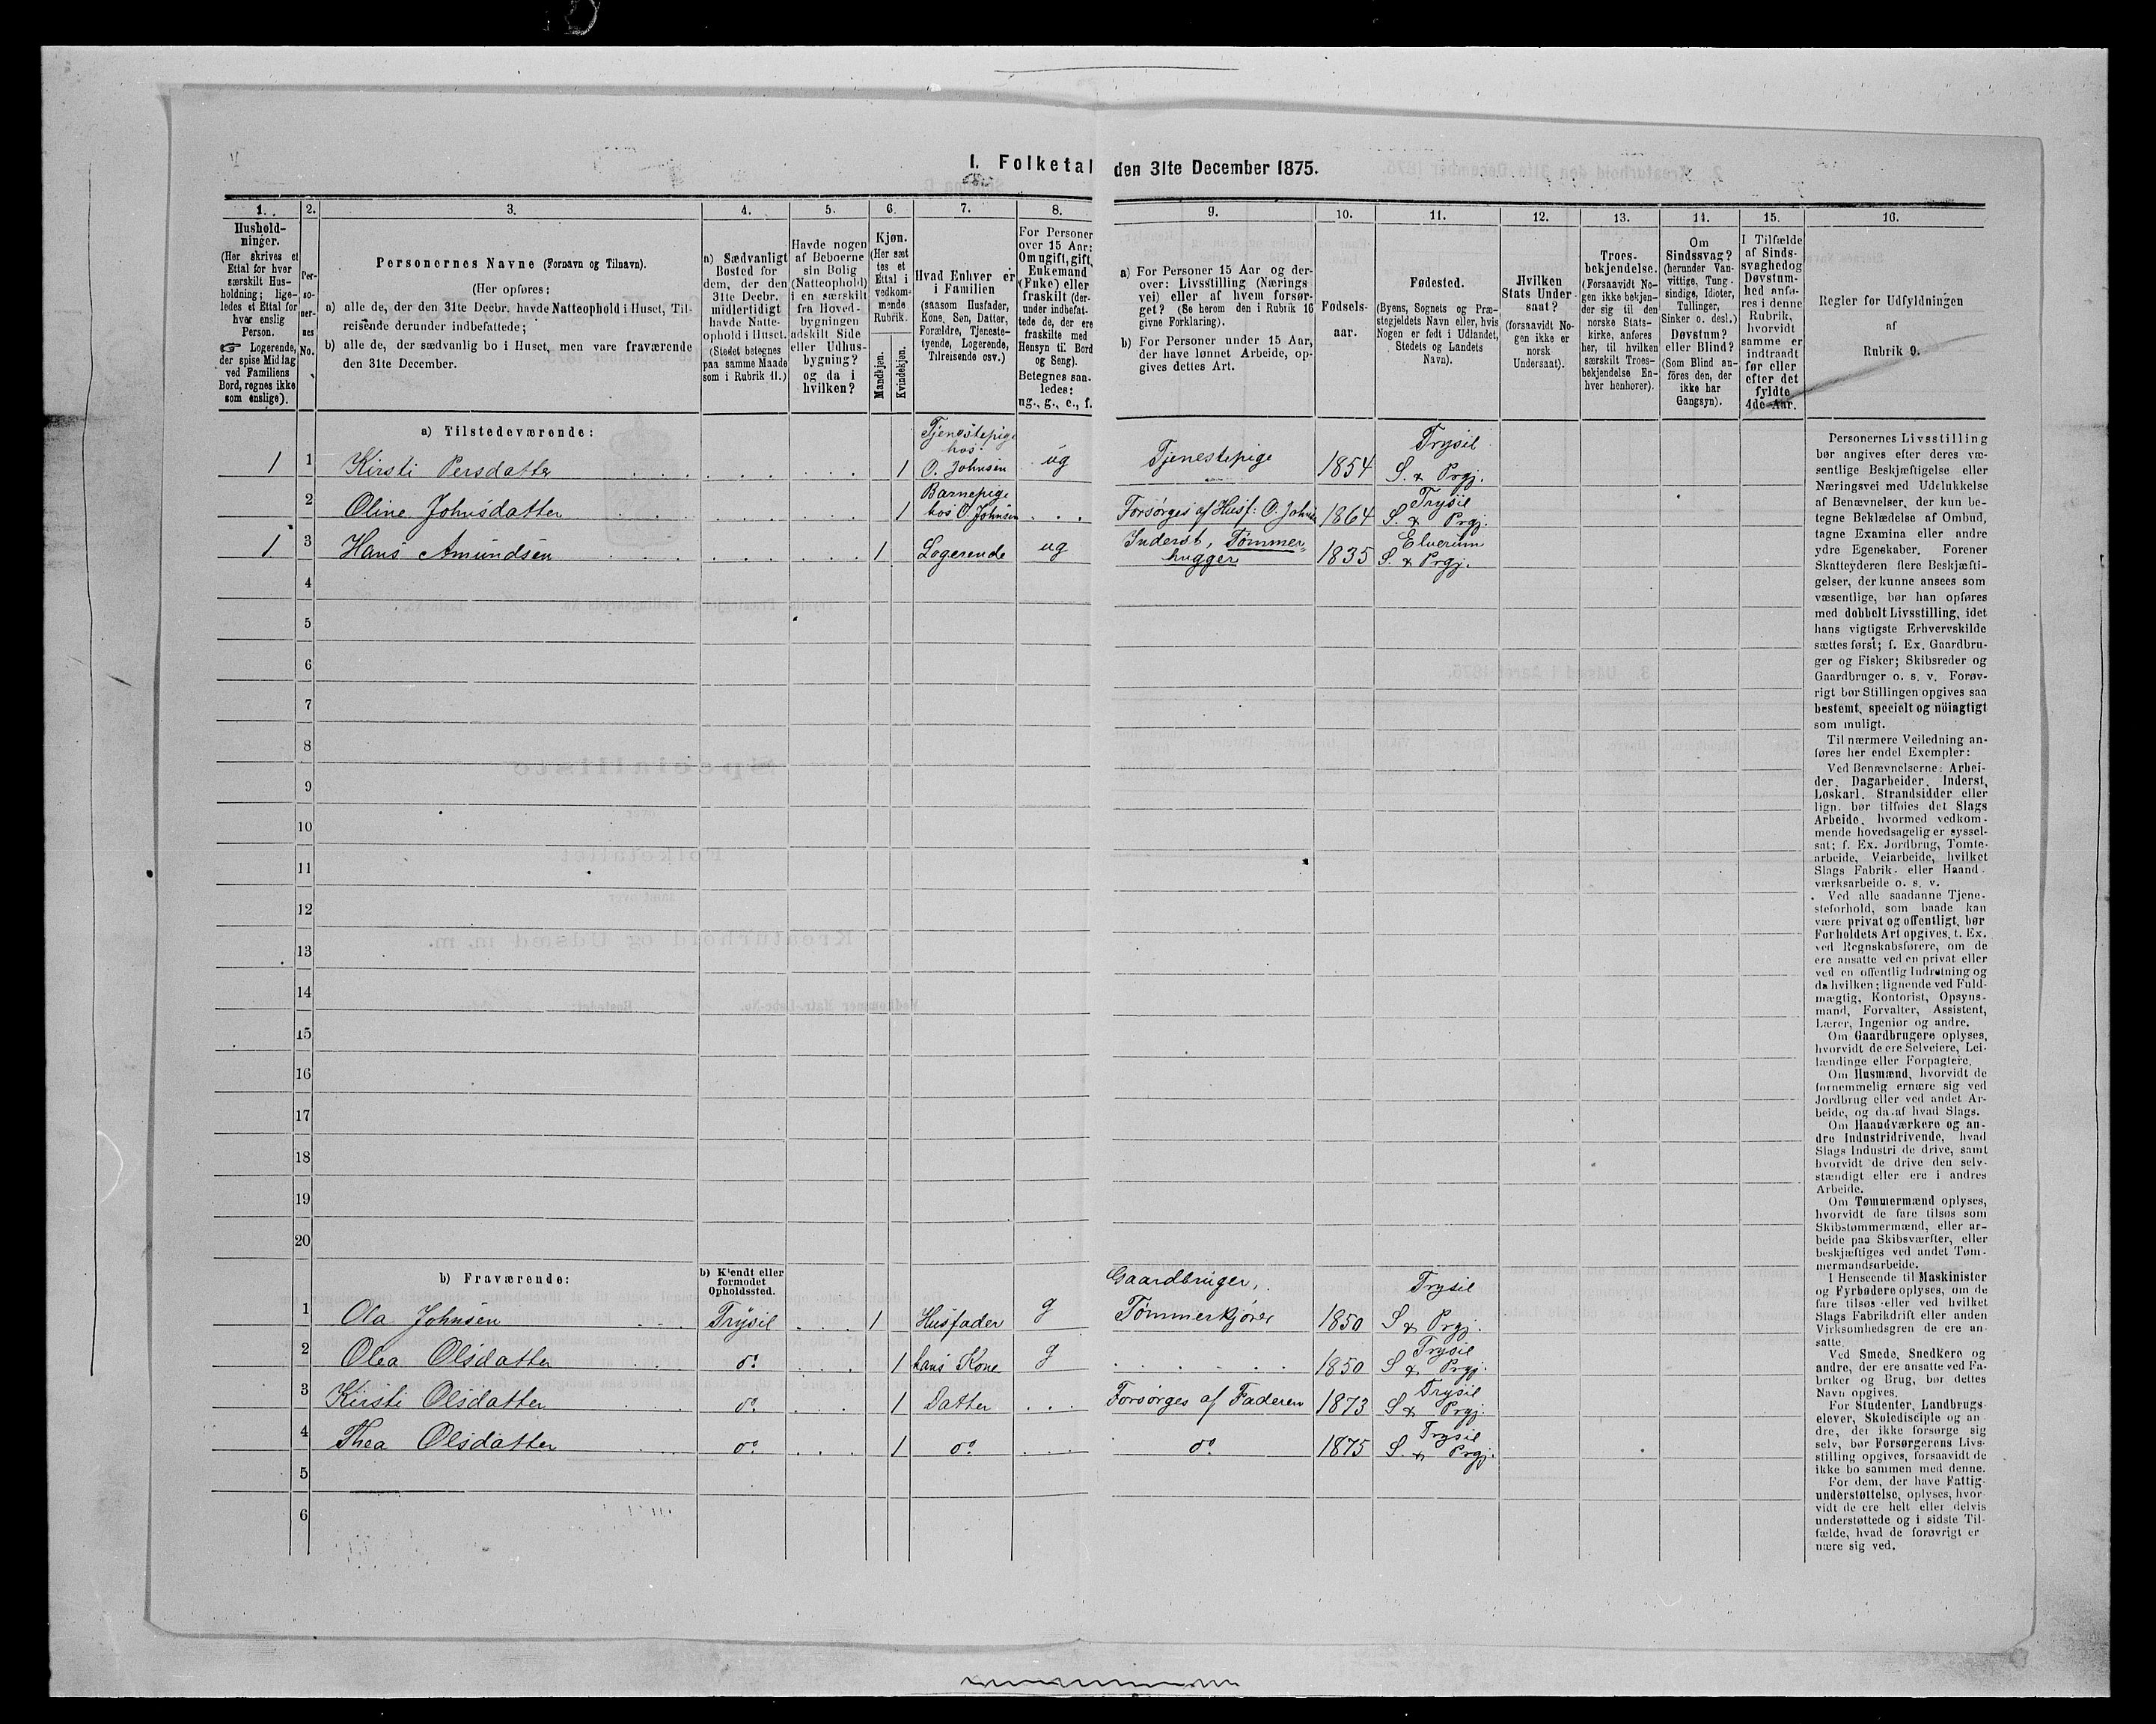 I. Folketal den 31te December 1875.
1.
Hushold-
ninger.
(Her skrives et
Ettal for hver
særskilt Hus-
holdning; lige-
ledes et Ettal for
hver enslig
Person.
☞ Logerende,
der spise Middag
ved Familiens
Bord, regnes ikke
som enslige).
2.
Per-
so-
ner-
nes
No.
3.
Personernes Navne (Fornavn og Tilnavn).
(Her opføres:
a) alle de, der den 31te Decbr. havde Natteophold i Huset, Til-
reisende derunder indbefattede;
b) alle de, der sædvanlig bo i Huset, men vare fraværende
den 31te December.
4.
a) Sædvanligt
Bosted for
dem, der den
31te Decbr.
midlertidigt
havde Natte-
ophold i Huset.
(Stedet betegnes
paa samme Maade
som i Rubrik 11.)
5.
Havde nogen
af Beboerne
sin Bolig
(Natteophold)
i en særskilt
fra Hoved-
bygningen
adskilt Side
eller Udhus-
bygning?
og da i
hvilken?
6.
Kjøn.
(Her sæt
tes et
Ettal i
vedkom-
mende
Rubrik.
Mandkjøn.
Kvindekjøn.
7.
Hvad Enhver er
i Familien
(saasom Husfader,
Kone, Søn, Datter,
Forældre, Tjeneste-
tyende, Logerende,
Tilreisende osv.)
8.
For Personer
over 15 Aar:
Om ugift, gift,
Enkemand
(Enke) eller
fraskilt (der-
under indbefat-
tede de, der ere
fraskilte med
Hensyn til Bord
og Seng).
Betegnes saa-
ledes:
ug., g., e., f.
9.
a) For Personer 15 Aar og der-
over: Livsstilling (Nærings
vei) eller af hvem forsør-
get? (Se herom den i Rubrik 16
givne Forklaring).
b) For Personer under 15 Aar,
der have lønnet Arbeide, op-
gives dettes Art.
10.
Fødsels-
aar.
11.
Fødested.
(Byens, Sognets og Præ-
stegjeldets Navn eller, hvis
Nogen er født i Udlandet,
Stedets og Landets
Navn).
12.
Hvilken
Stats Under-
saat?
(forsaavidt No-
gen ikke er
norsk
Undersaat).
13.
Troes-
bekjendelse.
(Forsaavidt No-
gen ikke bekjen-
der sig til den
norske Stats-
kirke, anføres
her, til hvilken
særskilt Troes-
bekjendelse En-
hver henhører).
14.
Om
Sindssvag?
(herunder Van-
vittige, Tung-
sindige, Idioter,
Tullinger,
Sinker o. desl.)
Døvstum?
eller Blind?
(Som Blind an-
föres den, der
ikke har
Gangsyn).
15.
I Tilfælde
af Sinds-
svaghed og
Døvstum-
hed anfø-
res i denne
Rubrik,
hvorvidt
samme er
indtraadt
før eller
efter det
fyldte
4de Aar.
16.
Regler for Udfyldningen
af
Rubrik 9.
a) Tilstedeværende:
1 1 Kirsti Persdatter 1 Tjenestepige hos O. Johnsen ug Tjenestepige 1854 Trysil S. & Prgj.
2 Oline Johnsdatter 1 Barnepige hos O. Johnsen Forsørges af Husf: O. Johnsen 1864 Trysil S. & Prgj.
1 3 Hans Amundsen 1 Logerende ug Inderst, Tømmerhugger 1835 Elverum S. & Prgj.
4
5
6
7
8
9
10
11
12
13
14
15
16
17
18
19
20
b) Fraværende:
b) Kjendt eller
formodet
Opholdssted.
1 Ola Johnsen Trysil 1 Husfader g Gaardbruger, Tømmerkjører 1850 Trysil S & Prgj.
2 Olea Olsdatter do 1 hans Kone g 1850 Trysil S & Prgj.
3 Kirsti Olsdatter do 1 Datter Forsørges af Faderen 1873 Trysil S & Prgj.
4 Thea Olsdatter do 1 do do 1875 Trysil S. & Prgj.
5
6
Personernes Livsstilling
bør angives efter deres væ-
sentlige Beskjæftigelse eller
Næringsvei med Udelukkelse
af Benævnelser, der kun be-
tegne Beklædelse af Ombud,
tagne Examina eller andre
ydre Egenskaber. Forener
Skatteyderen flere Beskjæfti-
gelser, der kunne ansees som
væsentlige, bør han opføres
med dobbelt Livsstilling, idet
hans vigtigste Erhvervskilde
sættes først; f. Ex. Gaardbru-
ger og Fisker; Skibsreder og
Gaardbruger o. s. v. Forøv-
rigt bør Stillingen opgives saa
bestemt, specielt og nöiagtigt
som muligt.
Til nærmere Veiledning an-
føres her endel Exempler:
Ved Benævnelserne: Arbei-
der, Dagarbeider, Inderst,
Løskarl, Strandsidder eller
lign. bør tilføies det Slags
Arbeide, hvormed vedkom-
mende hovedsagelig er syssel-
sat; f. Ex. Jordbrug, Tomte-
arbeide, Veiarbeide, hvilket
Slags Fabrik- eller Haand-
værksarbeide o. s. v.
Ved alle saadanne Tjene-
steforhold, som baade kan
være privat og offentligt, bør
Forholdets Art opgives, f. Ex.
ved Regnskabsførere, om de
ere ansatte ved en privat eller
ved en offentlig Indretning og
da hvilken; lignende ved Fuld-
mægtig, Kontorist, Opsyns-
mand, Forvalter, Assistent,
Lærer, Ingeniør og andre.
Om Gaardbrugere oplyses,
hvorvidt de ere Selveiere, Lei-
lændinge eller Forpagtere.
Om Husmænd, hvorvidt de
fornemmelig ernære sig ved
Jordbrug eller ved andet Ar-
beide, og da af hvad Slags.
Om Haandværkere og an-
dre Industridrivende, hvad
Slags Industri de drive, samt
hvorvidt de drive den selv-
stændigt eller ere i andres
Arbeide.
Om Tømmermænd oplyses,
hvorvidt de fare tilsøs som
Skibstømmermænd, eller ar-
beide paa Skibsværfter, eller
beskjæftiges ved andet Tøm-
mermandsarbeide.
I Henseende til Maskinister
og Fyrbødere oplyses, om de
fare tilsøs eller ved hvilket
Slags Fabrikdrift eller anden
Virksomhedsgren de ere an-
satte.
Ved Smede, Snedkere og
andre, der ere ansatte ved Fa-
briker og Brug, bør dettes
Navn opgives.
For Studenter, Landbrugs-
elever, Skoledisciple og an-
dre, der ikke forsørge sig
selv, bør Forsørgerens Livs-
stilling opgives, forsaavidt de
ikke bo sammen med denne.
For dem, der have Fattig-
understøttelse, oplyses, hvor-
vidt de ere helt eller delvis
understøttede og i sidste Til-
fælde, hvad de forøvrigt er
nære sig ved.